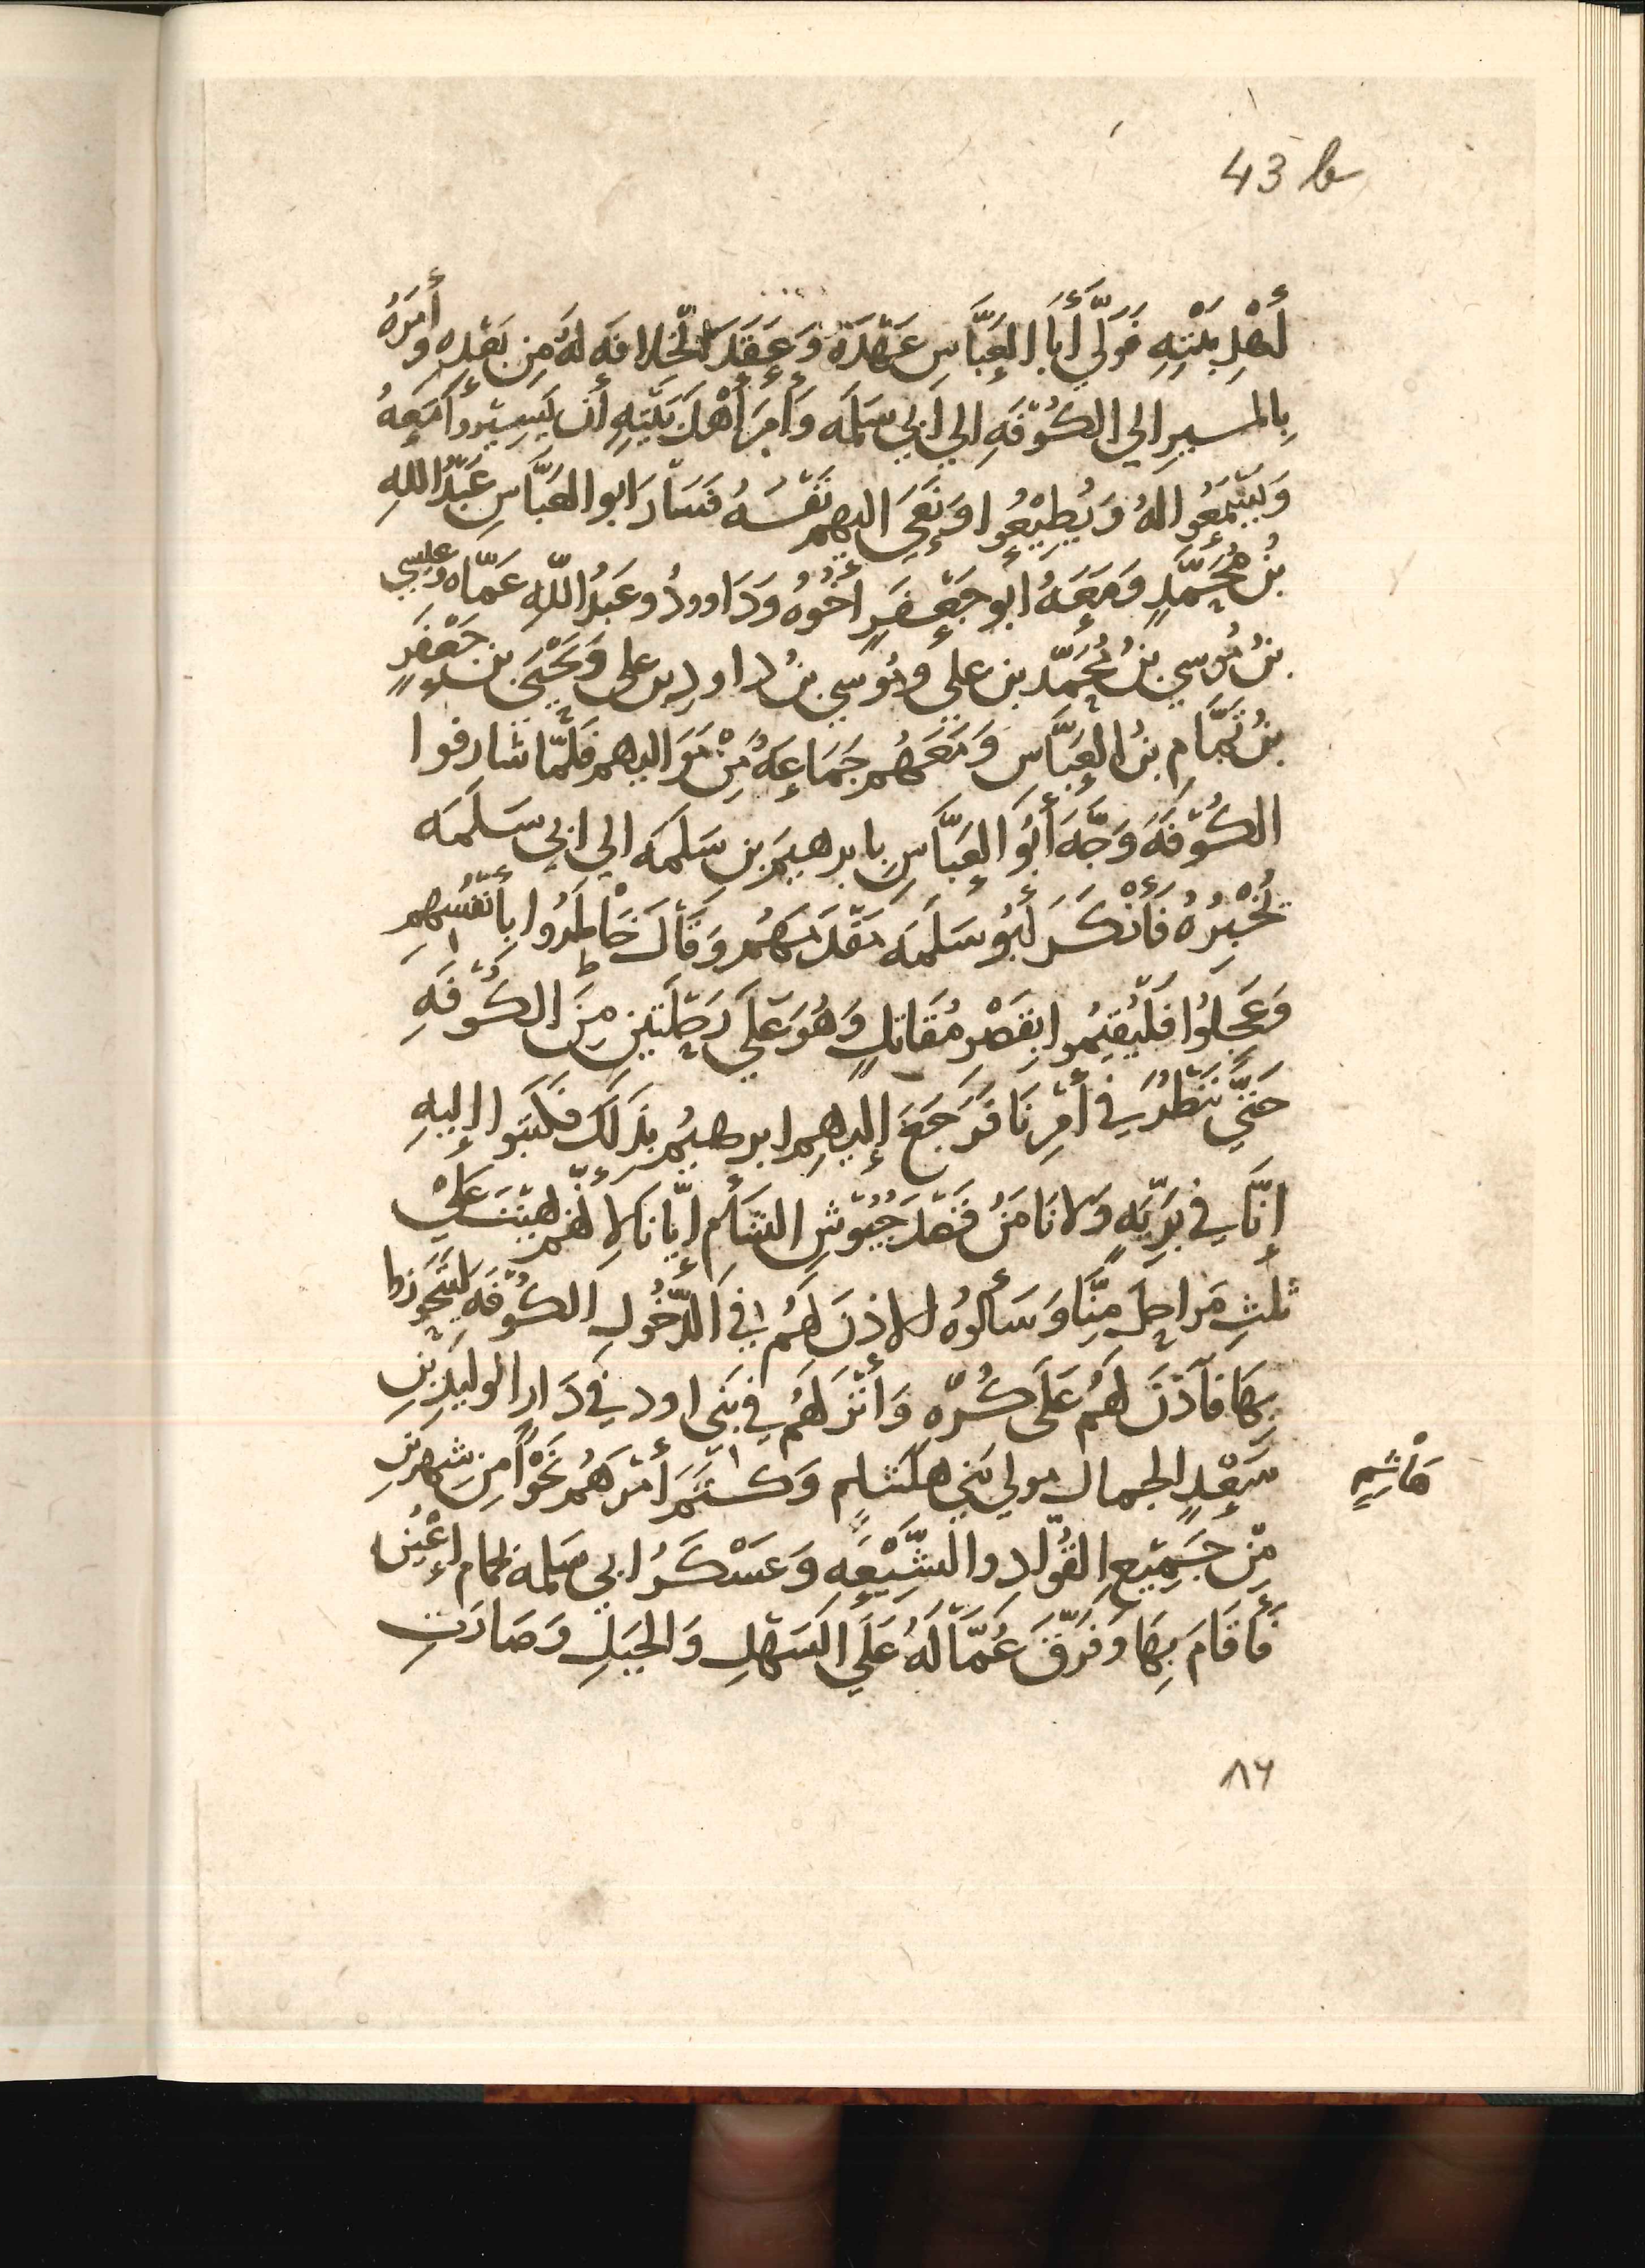 43 b
أَهْلِ بَيْتِهِ فَوَلَّي أَبَا العَبَّاسِ عَهْدَهُ وَعَقَدَ الخِلَافَه لَهُ مِن بَعْدِهِ وَأَمَرَهُ
بِالمَسِيرِ الي الكُوْفَهِ الي أَبي سَلَمَه وَأَمَرَ أَهْلَ بَيْتِهِ أَن يَسِيْرُوا مَعَهُ
وَيَسْمَعُوا لَهُ وَيُطِيْعُوا وَنَعَى اليهم نَفْسَهُ فَسَارَ ابو العَبَّاسِ عَبْدُ اللهِ
بْنُ مُحَمَّدٍ وَمَعَهُ ابو جَعْفَرٍ أَخُوهُ وَدَاوودُ وعَبْدُ اللّهِ عَمَّاه وعيسي
بنُ مُوسي بنُ مُحَمَّد بن علي ومُوسي بنُ داودِ بن على وَيَحْيَى بن جَعْفَرِ
بنُ تَمَّامِ بنُ العَبَّاسِ وَمَعَهُم جَمَاعَهٌ مِنْ مَوَاليهم فَلَمَّا شارفوا
الكُوْفَهَ وَجَّهَ أَبُو العَبَّاسِ بابرهيمَ بن سَلَمَه الي ابي سَلَمَه
يُخْبِرُهُ فَأَنْكَرَ أَبُو سَلَمَه مَقْدَمَهُم وَقَالَ خَاطَرُوا بِأَنْفُسِهِم
وَعَجِلُوا فَلْيُقِيْمُوا بِقَصْرِ مُقَاتِلٍ وَهُوَ عَلَي مَرْحَلَتَيْنِ مِنَ الكُوْفَهِ
حَتَّي نَنْظُرَ في أَمْرِنَا فَرَجَعَ إِليهِم ابرهيمُ بذَلِكَ فَكَتَبوا إِليهِ
إِنَّا في بَرِّيَّهٍ وَلَا نَامَنُ قَصْدَ جُيُوْشِ الشَامِ إِيَّانَا لِأَنَّهُم بِهِيْتَ عَلَيْ
ثَلثِ مَراحِلَ مِنَّا وَسَأَلُوهُ الاذنَ لَهُم في الدُّخُولِ الكُوْفَهِ لِيَتَحَرَّزوا
بِهَا فآذَنَ لَهُم عَلَى كُرْهٍ وَأَنْزَلَهُم في بَني اود في دَارِ الوليْدِ بْنِ
سَعْدٍ الجمال مولي بَني هاشمٍ وَكَتَمَ أَمْرَهُم نَحْوًا مِن شهرين
هَاشِمٍ
مِنْ جَمِيْعِ القُوّادِ والشِّيْعَهِ وَعَسْكَرُ ابي سلمه بحمام اعْيَن
فَأَقَامَ بِهَا وَفَرَّقَ عُمَّالَهُ عَلَي السَهْلِ وَالجَبَلِ وَصَارَتِ
٨٦